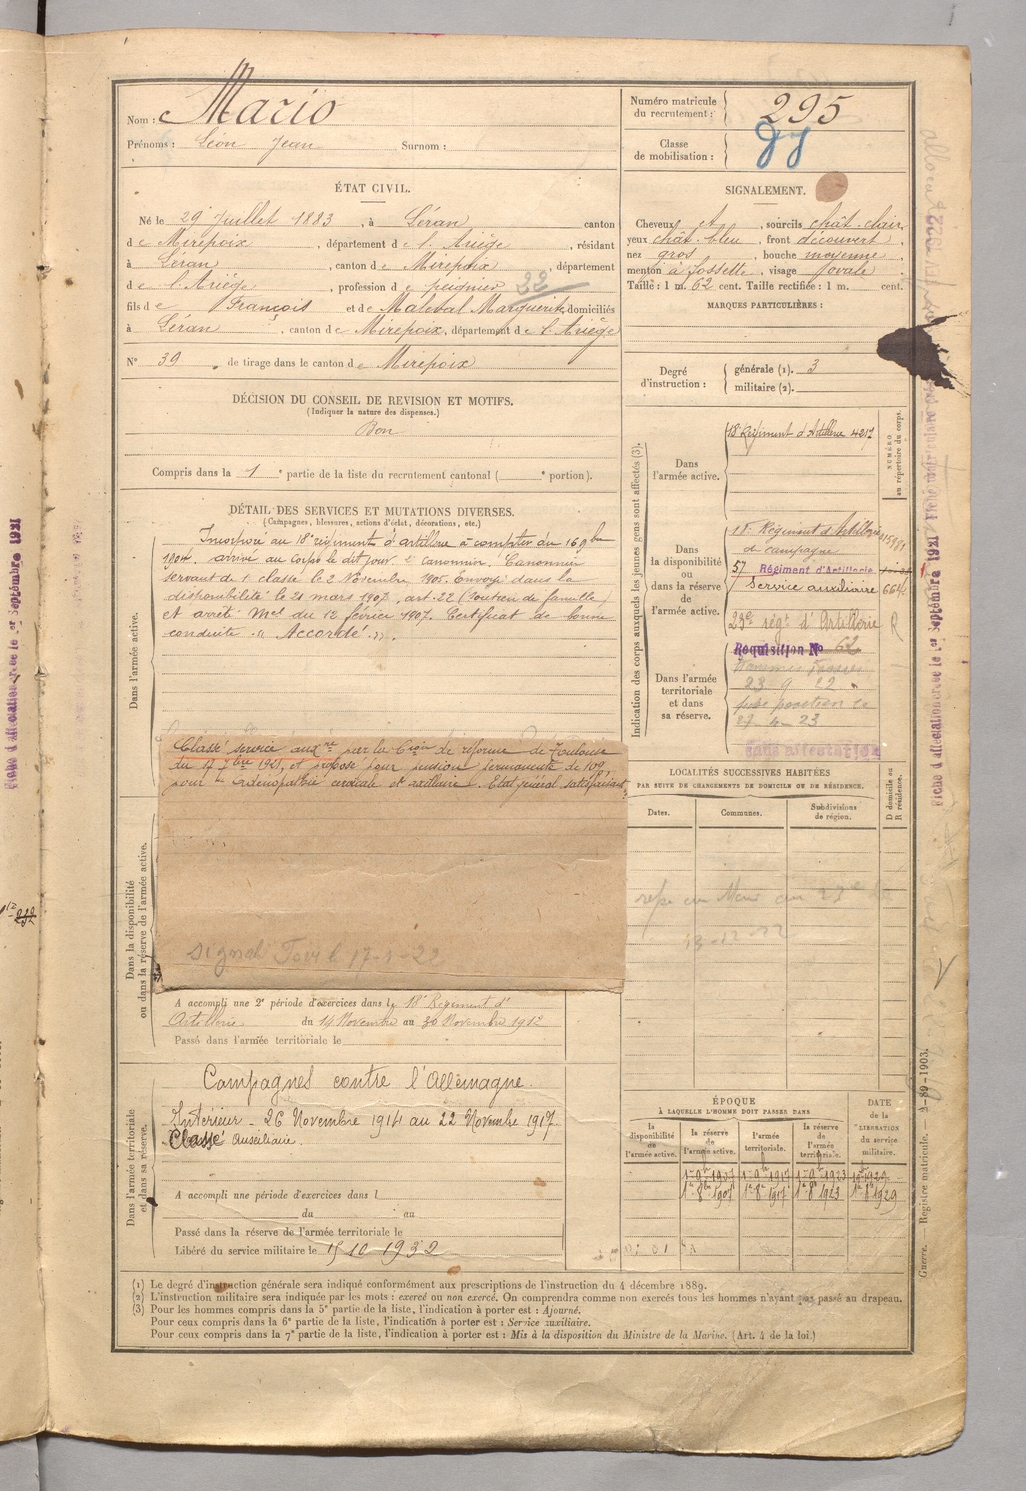 Nom : Mario
Prénoms : Léon Jean Surnom :
Numéro matricule du recrutement : 295
Classe de mobilisation :
ÉTAT CIVIL.
Né le 29 Juillet 1883, à Léran canton
de Mirepoix, département de l'Ariège, résidant
à Léran, canton de Mirepoix, département
de l'Ariège, profession de peignier 22
fils de François et de Maleval Marguerite, domiciliés
à Léran, canton de Mirepoix, département de l'Ariège
N° 39 de tirage dans le canton de Mirepoix
SIGNALEMENT.
Cheveux, sourcils chât. clair,
yeux chât. bleu, front découvert,
nez gros, bouche moyenne,
menton à fossette, visage ovale.
Taille : 1 m. 62 cent. Taille rectifiée : 1 m. cent.
MARQUES PARTICULIÈRES :
Degré d'instruction : générale (1). 3
militaire (2).
DÉCISION DU CONSEIL DE REVISION ET MOTIFS.
(Indiquer la nature des dispenses.)
Bon
Compris dans la 1e partie de la liste du recrutement cantonal ( e portion).
DÉTAIL DES SERVICES ET MUTATIONS DIVERSES.
(Campagnes, blessures, actions d'éclat, décorations, etc.)
Dans l'armée active.
Incorporé au 18e régiment d'artillerie à compter du 16 9bre
1904, arrivé au corps le dit jour. 2e Canonnier. Canonnier
servant de 1e classe le 2 Novembre 1905. Envoyé dans la
disponibilité le 21 mars 1907, art. 22 (Soutien de famille)
et arrêté Mel du 12 février 1907. Certificat de bonne
conduite « Accordé ».
Dans la disponibilité
ou dans la réserve de l'armée active.
Classé service auxre par la Con de réforme de Toulouse
du 17 7bre 1921, et proposé pour pension permanente de 10%
pour adénopathie cervicale et axillaire. Etat général satisfaisant.
17-1-22
A accompli une 2e période d'exercices dans le 18e Régiment d'
Artillerie du 14 Novembre au 30 Novembre 1912
Passé dans l'armée territoriale le
Dans l'armée territoriale
et dans sa réserve.
Campagnes contre l'Allemagne.
Intérieur - 26 Novembre 1914 au 22 Novembre 1917.
Classé Auxiliaire.
A accompli une période d'exercices dans l
du au
Passé dans la réserve de l'armée territoriale le
Libéré du service militaire le 15 10 1932
Indication des corps auxquels les jeunes gens sont affectés (3).
NUMÉRO au répertoire du corps.
Dans l'armée active.
18 Régiment d'Artillerie 4217
Dans la disponibilité ou dans la réserve de l'armée active.
18e Régiment d'Artillerie
de campagne
57 Régiment d'Artillerie
Service auxiliaire 664
23e régt d'Artillerie R
Dans l'armée territoriale et dans sa réserve.
Requisition No 62
23 9 22
27-4-23
Sans affectation
LOCALITÉS SUCCESSIVES HABITÉES
PAR SUITE DE CHANGEMENTS DE DOMICILE OU DE RÉSIDENCE.
Dates.
Communes.
Subdivisions de région.
D domicile ou R résidence.
13-12-22
ÉPOQUE
À LAQUELLE L'HOMME DOIT PASSER DANS
la disponibilité de l'armée active.
la réserve de l'armée active.
l'armée territoriale.
la réserve de l'armée territoriale.
DATE de la LIBÉRATION du service militaire.
(1) Le degré d'instruction générale sera indiqué conformément aux prescriptions de l'instruction du 4 décembre 1889.
(2) L'instruction militaire sera indiquée par les mots : exercé ou non exercé. On comprendra comme non exercés tous les hommes n'ayant pas passé au drapeau.
(3) Pour les hommes compris dans la 5e partie de la liste, l'indication à porter est : Ajourné.
Pour ceux compris dans la 6e partie de la liste, l'indication à porter est : Service auxiliaire.
Pour ceux compris dans la 7e partie de la liste, l'indication à porter est : Mis à la disposition du Ministre de la Marine. (Art. 4 de la loi.)
Guerre. — Registre matricule. — 2-89-1903.
Fiche d'affectation créée le 1er Septembre 1921
Fiche d'affectation créée le 1er Septembre 1921